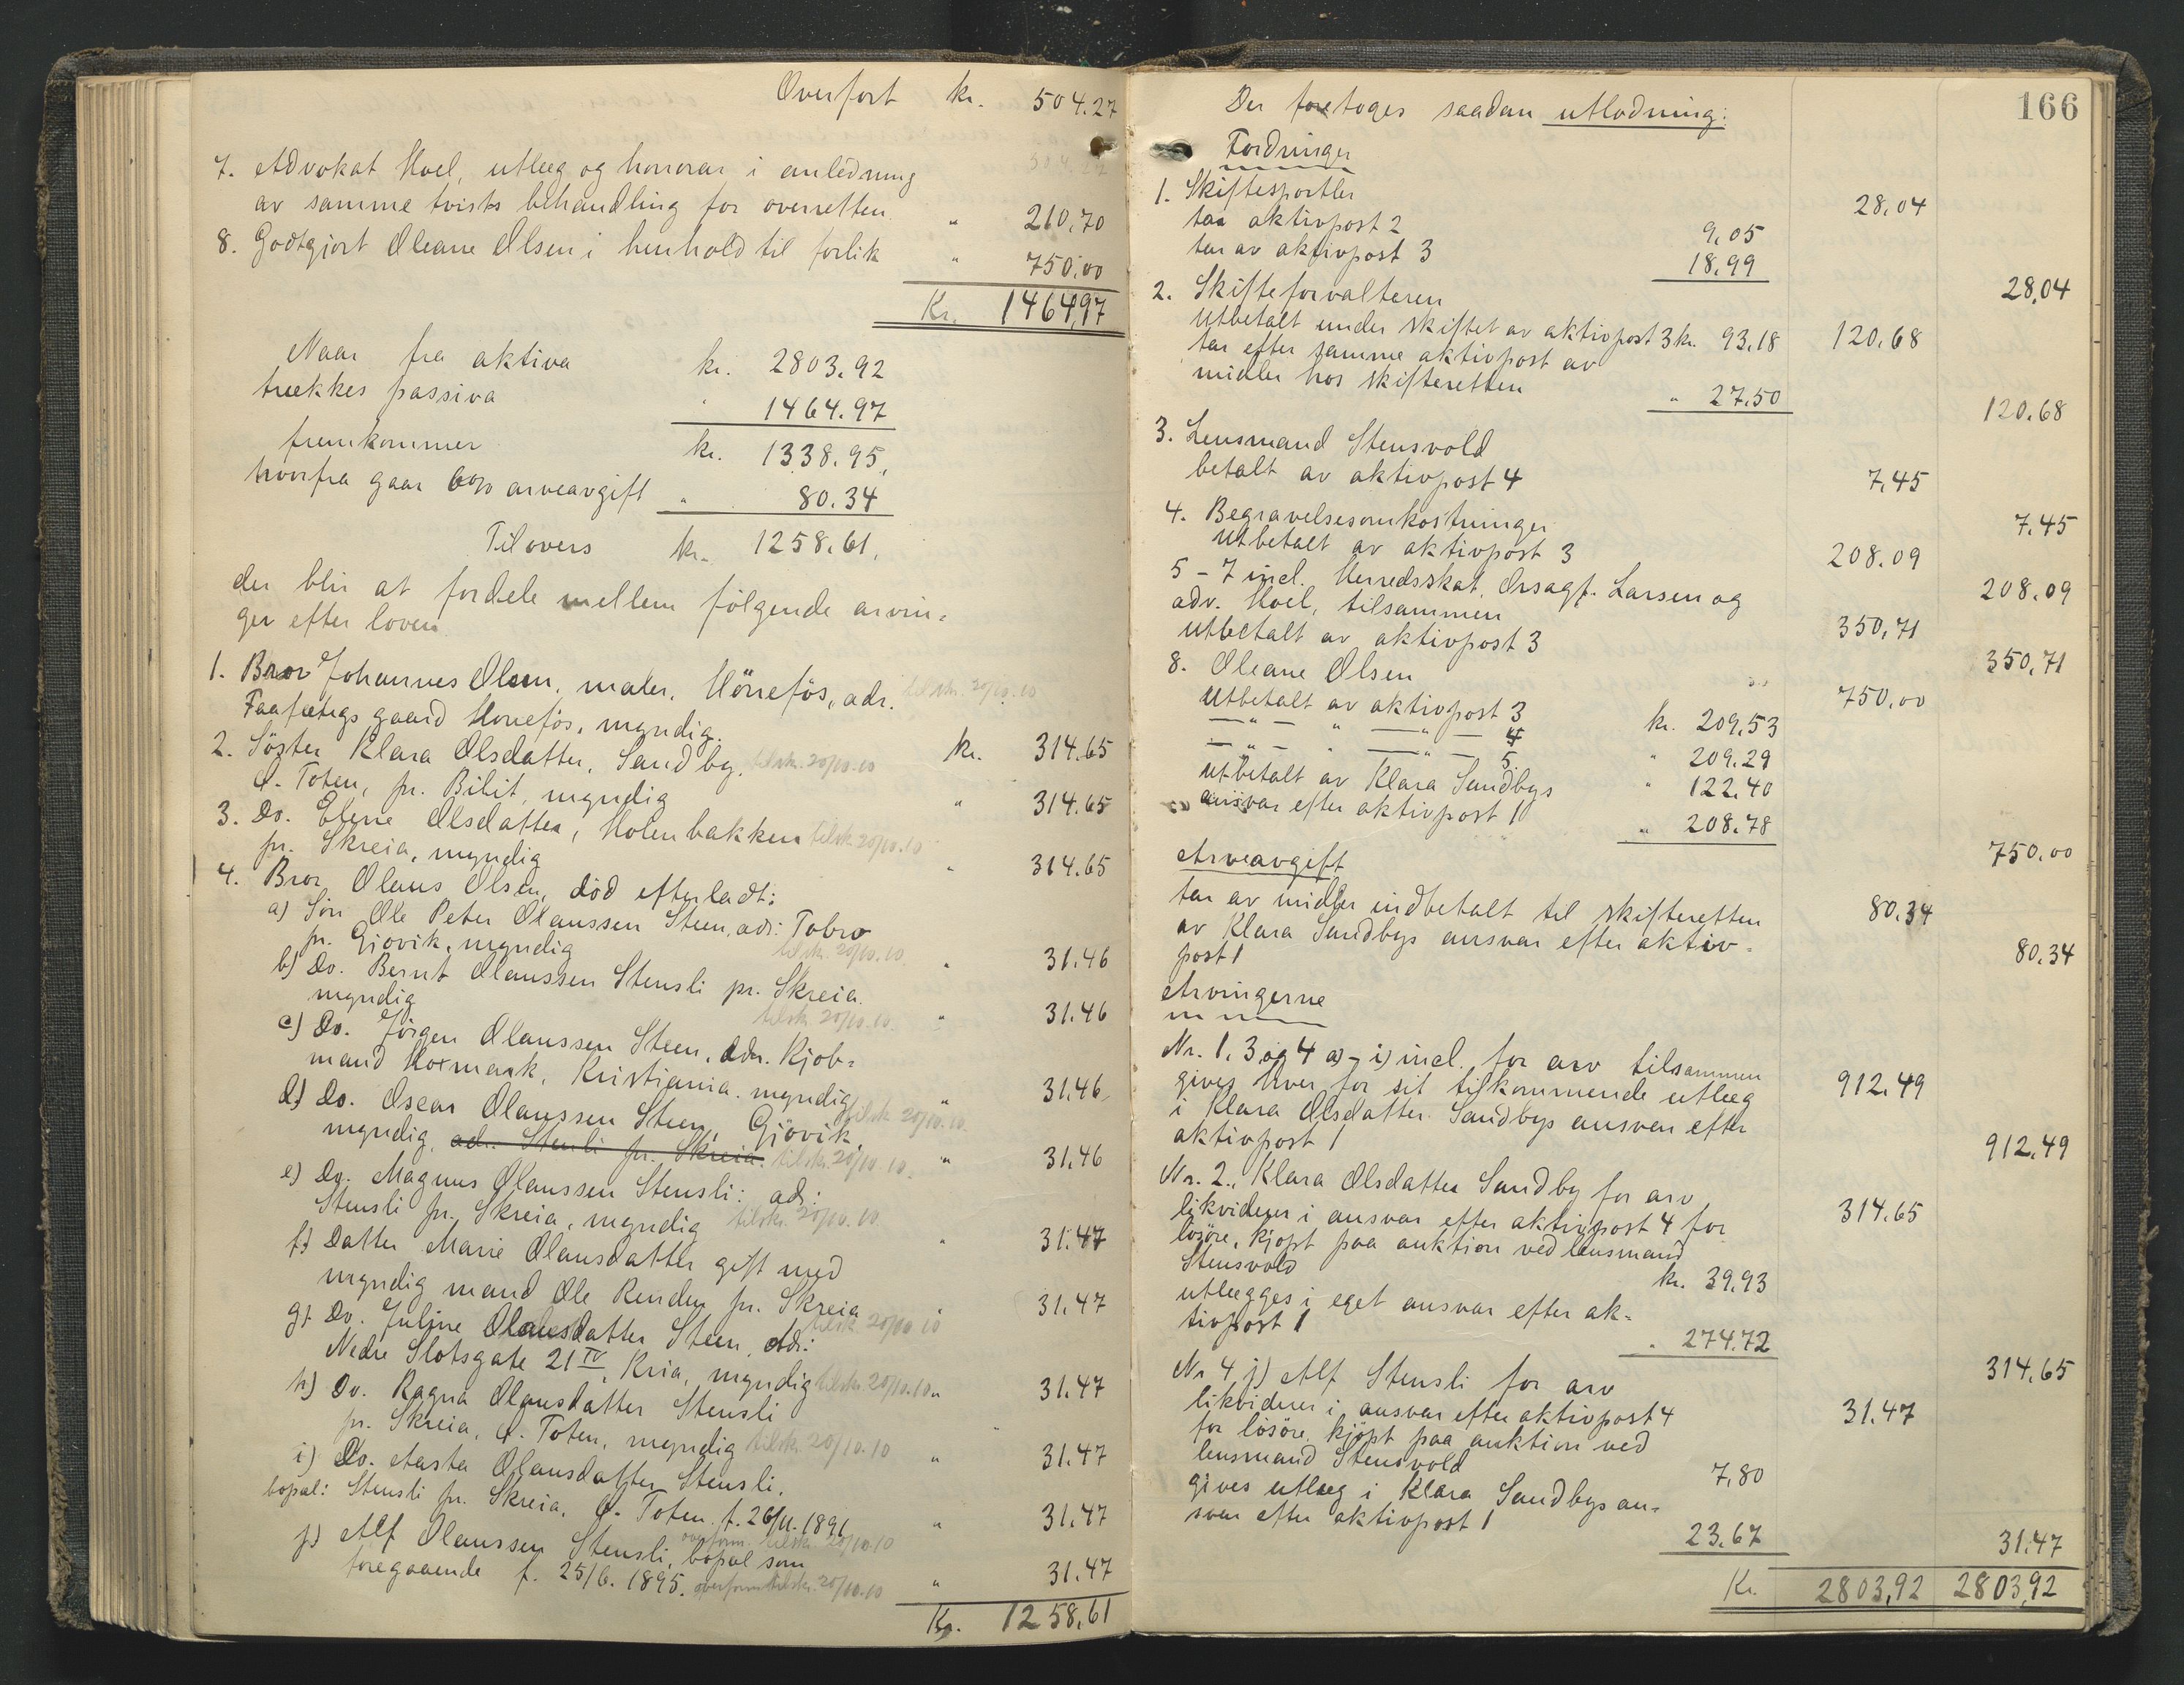 Overført kr. 504.27
7. Advokat Hoel, utlæg og honorar i anledning
av samme tvists behandling for overretten " 210,70
8. Godtgjort Oleane Olsen i henhold til forlik " 750,00
Kr. 1464,97
Naar fra aktiva kr. 2803.92
trækkes passiva " 1464.97
fremkommer kr. 1338.95,
hvorfra gaar 6% arveavgift " 80.34
Tilovers kr. 1258.61,
der blir at fordele mellem følgende arvin-
ger efter loven
1. Bror Johannes Olsen, maler, Hönefös, adr. tilskr. 20/10.10
gaard Hönefos, myndig. kr. 314.65
2. Söster Klara Olsdatter, Sandby, tilskr. 20/10.10
Ö. Toten, pr. Bilit, myndig " 314.65
3. Do. Eline Olsdatter, Holenbakken tilskr. 20/10.10
pr. Skreia, myndig " 314.65
4. Bror Olaus Olsen, död efterladt:
a) Sön Ole Peter Olaussen Steen, adr: Tobro
pr. Gjövik, myndig tilskr. 20/10.10 " 31.46
b) Do. Bernt Olaussen Stensli pr. Skreia.
myndig tilskr. 20/10.10. " 31.46
c) Do. Jörgen Olaussen Steen, adr. Kjöb-
mand Hormark, Kristiania. myndig " 31.46
tilskr. 20/10.10.
d) Do. Oscar Olaussen Steen, Gjövik,
myndig, adr. Stensli pr. Skreia. tilskr. 20/10.10. " 31.46
e) Do. Magnus Olaussen Stensli: adr:
Stensli pr. Skreia, myndig tilskr. 20/10.10. " 31.47
f) Datter Marie Olausdatter gift med
myndig mand Ole Renden pr. Skreia " 31.47
tilskr. 20/10.10
g) Do. Juline Olausdatter Steen, adr:
Nedre Slotsgate 21 IV, Kria, myndig tilskr. 20/10.10 " 31.47
h) Do. Ragna Olausdatter Stensli
pr. Skreia, Ö. Toten, myndig tilskr. 20/10.10 " 31.47
i) Do. Aasta Olausdatter Stensli,
bopæl: Stensli pr. Skreia, Ö. Toten f. 26/11.1891 " 31.47
overform. tilskr. 20/10.10
j) Alf Olaussen Stensli, bopæl som
foregaaende f. 25/6.1895. overform. tilskr. 20/10.10 " 31.47
Kr. 1258,61
166
Der foretoges saadan utlodning:
Fordringer
1. Skiftesportler 28,04
tar aktivpost 2 9,05
tar av aktivpost 3 18,99
28,04
2. Skifteforvalteren 120,68
utbetalt under skiftet av aktivpost 3 kr. 93,18
tar efter samme aktivpost av
midler hos skifteretten " 27.50
120.68
3. Lensmand Stensvold 7,45
betalt av aktivpost 4
7.45
4. Begravelsesomkostninger 208.09
utbetalt av aktivpost 3
208.09
5 - 7 incl. Herredsskat, Orsagf. Larsen og
adv. Hoel, tilsammen 350,71
utbetalt av aktivpost 3
350,71
8. Oleane Olsen 750,00
utbetalt av aktivpost 3 kr. 209,53
— " — " — " — 4 " 209.29
— " — " — " — 5. " 122.40
utbetalt av Klara Sandbys
ansvar efter aktivpost 1 " 208.78
750.00
Arveavgift 80.34
tar av midler indbetalt til skifteretten
av Klara Sandbys ansvar efter aktiv-
post 1
80.34
Arvingerne
Nr. 1, 3 og 4 a) - i) incl. for arv tilsammen 912.49
gives hver for sit tilkommende utlæg
i Klara Olsdatter Sandbys ansvar efter
aktivpost 1
912.49
Nr. 2., Klara Olsdatter Sandby for arv 314.65
likviderer i ansvar efter aktivpost 4 for
lösöre, kjöpt paa auktion ved lensmand
Stensvold kr. 39,93
utlægges i eget ansvar efter ak-
tivpost 1 " 274.72
314.65
Nr 4 j) Alf Stensli for arv 31.47
likviderer i ansvar efter aktivpost 4
for lösöre, kjöpt paa auktion ved
lensmand Stensvold 7,80
gives utlæg i Klara Sandbys an-
svar efter aktivpost 1 23.67
31.47
Kr. 2803,92 2803,92